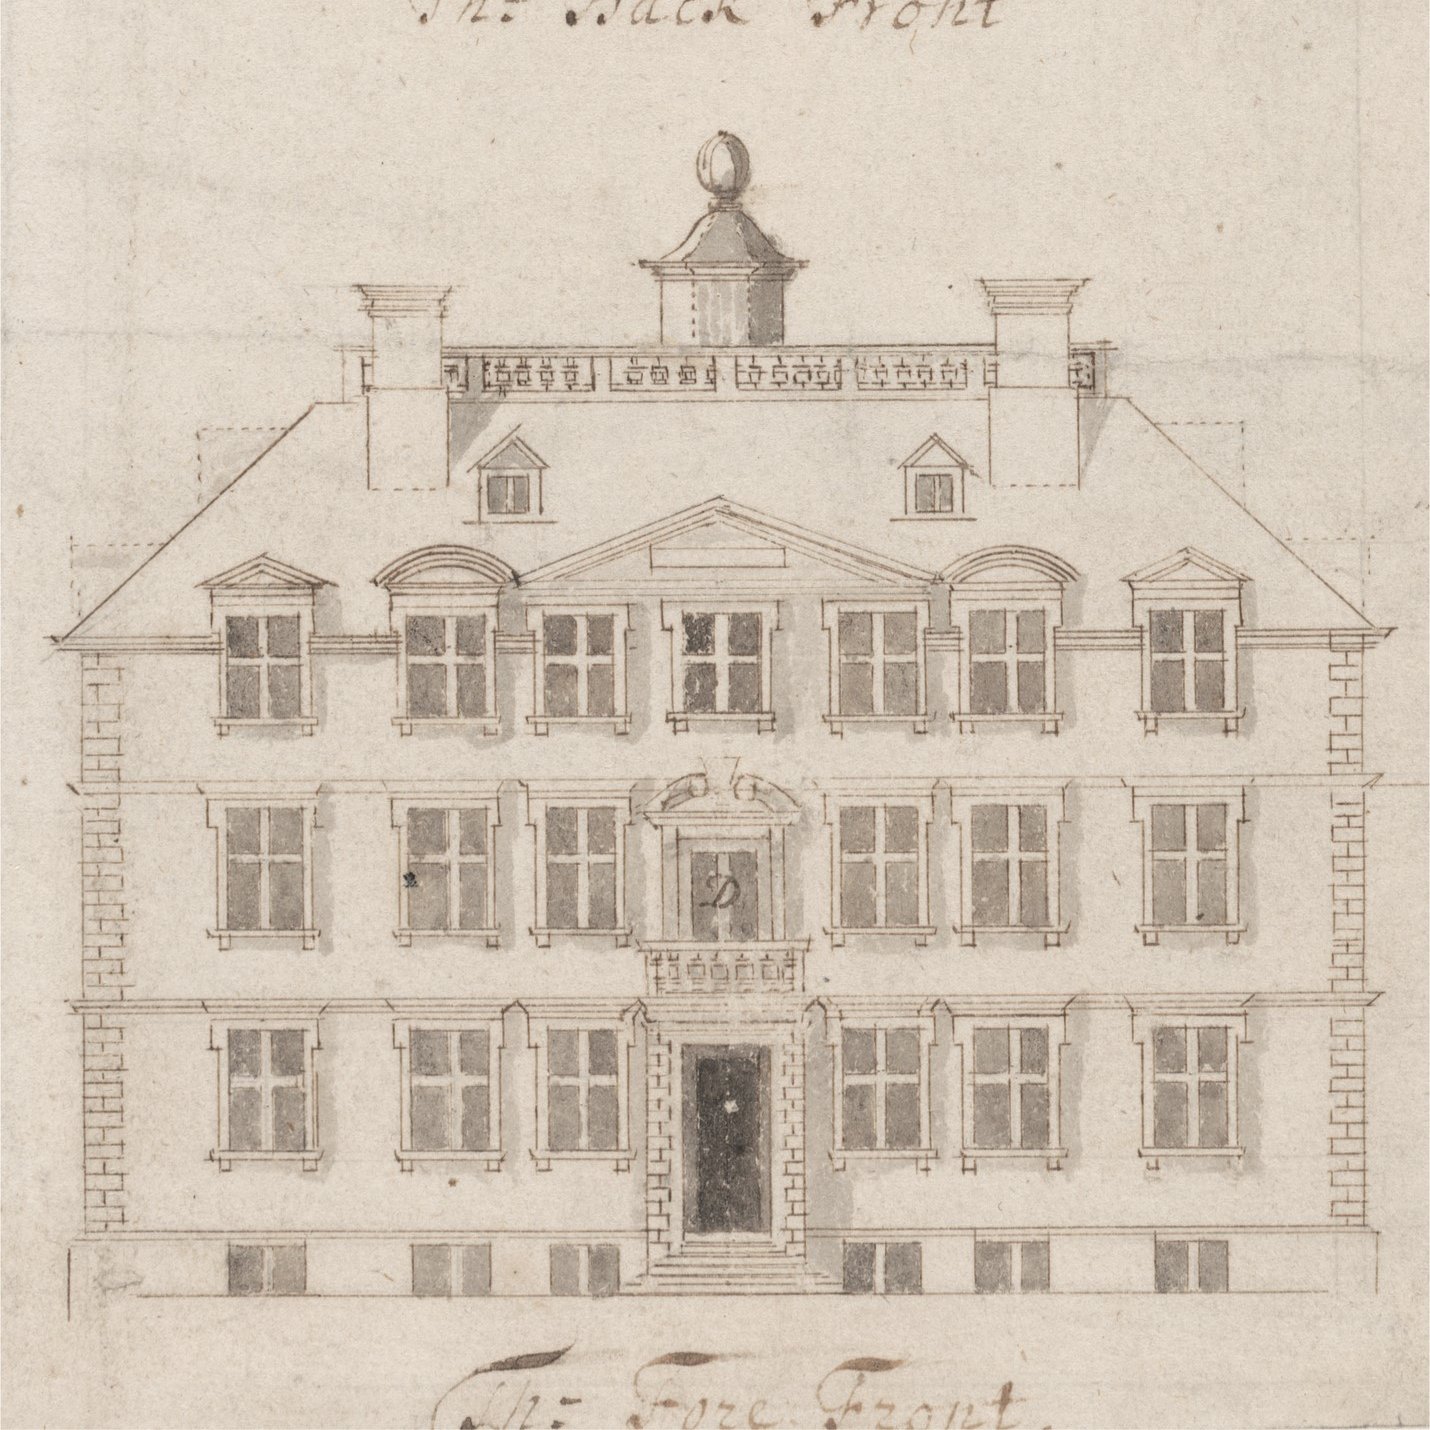 Th: Back Front
D
Th: Fore Front.